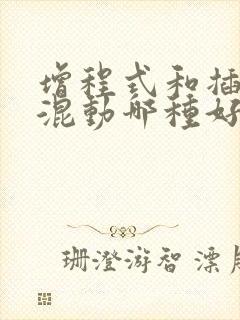 增程式和插
混動哪種好
珊澄游智漂